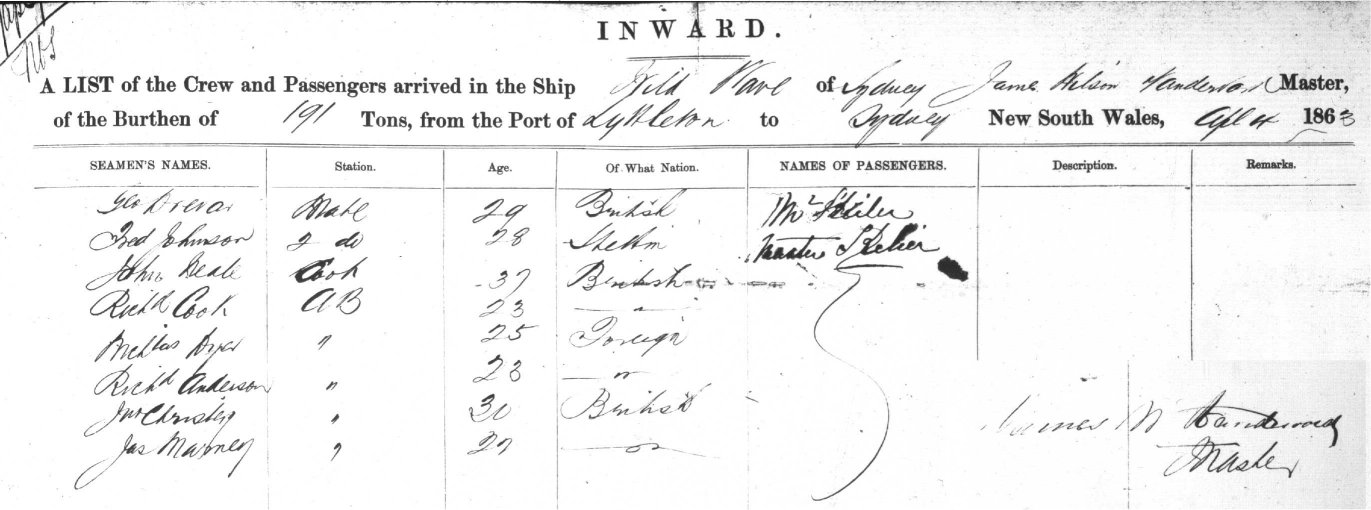 INWARD.
A LIST of the Crew and Passengers arrived in the Ship Wild Wave of Sydney James Wilson Master,
of the Burthen of 191 Tons, from the Port of Lyttleton to Sydney New South Wales, Apl 4 1863
SEAMEN'S NAMES. Station. Age. Of What Nation. NAMES OF PASSENGERS. Description. Remarks.
Geo Drevar Mate 29 British Mr
Fred Johnson 2 do 28 Master
John Beale Cook 37 British
Richd Cook AB 23 "
Dyer " 25 Foreign
Richd Anderson " 23 "
Jno " 30 British
Jas " 27 "
Master